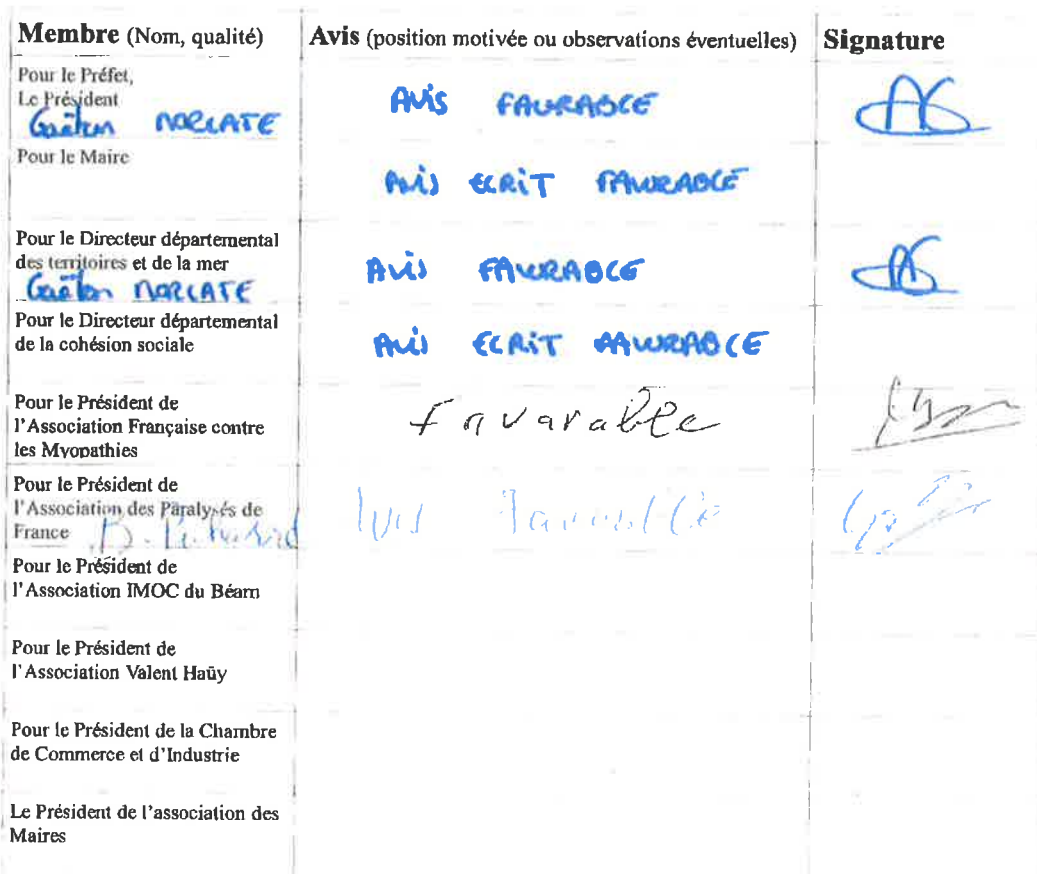 Membre (Nom, qualité) Avis (position motivée ou observations éventuelles) Signature
Pour le Préfet,
Le Président
Gaëtan NORLATE AVIS FAVORABLE
Pour le Maire
AVIS ECRIT FAVORABLE
Pour le Directeur départemental
des territoires et de la mer
Gaëtan NORLATE AVIS FAVORABLE
Pour le Directeur départemental
de la cohésion sociale
AVIS ECRIT FAVORABLE
Pour le Président de
l'Association Française contre
les Myopathies
favorable
Pour le Président de
l'Association des Paralysés de
France
Avis Favorable
Pour le Président de
l'Association IMOC du Béarn
Pour le Président de
l'Association Valent Haüy
Pour le Président de la Chambre
de Commerce et d'Industrie
Le Président de l'association des
Maires